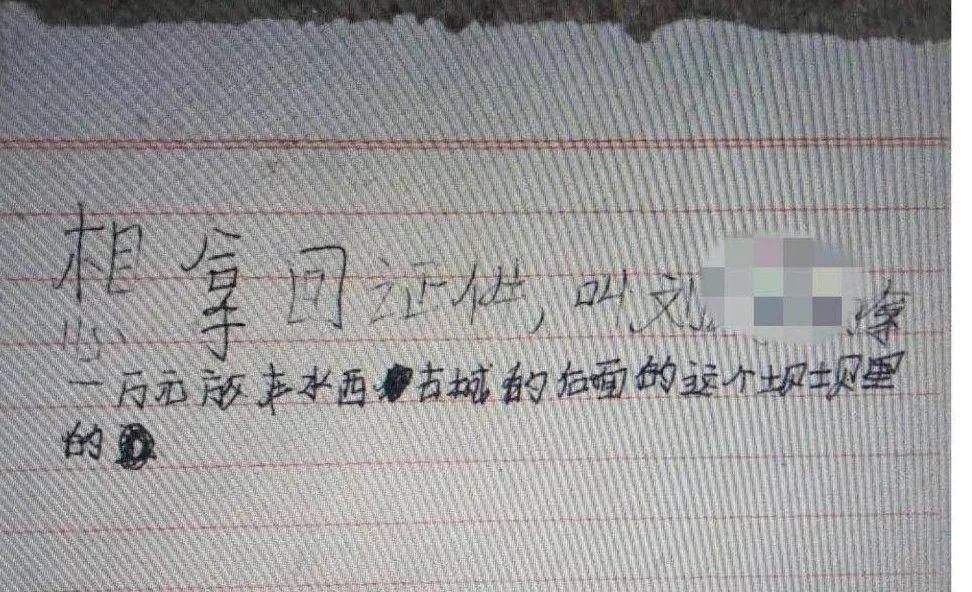 想拿回证供,叫刘
一万元放在水西古城的后面的这个坝坝里
的